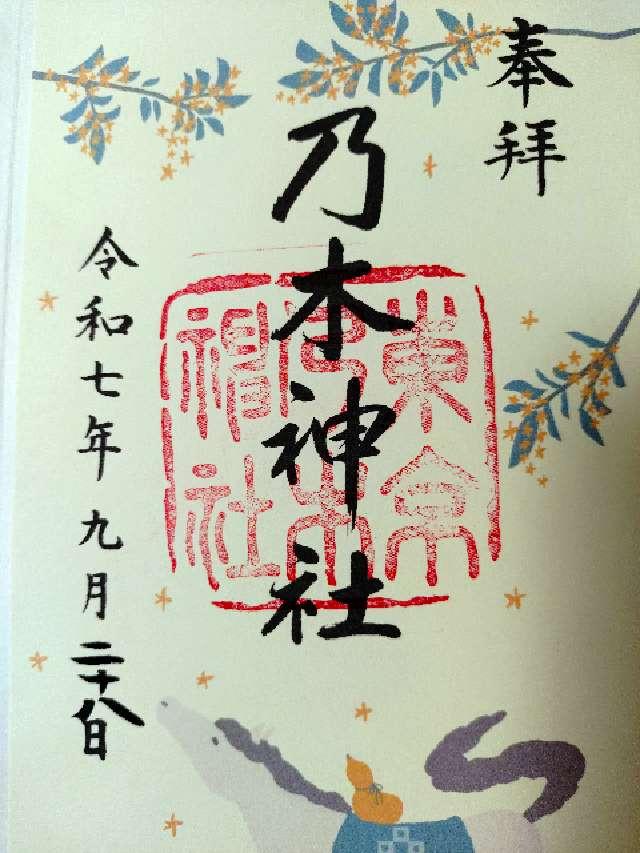 奉拝
乃木神社
東京
乃木
神社
令和七年九月二十八日